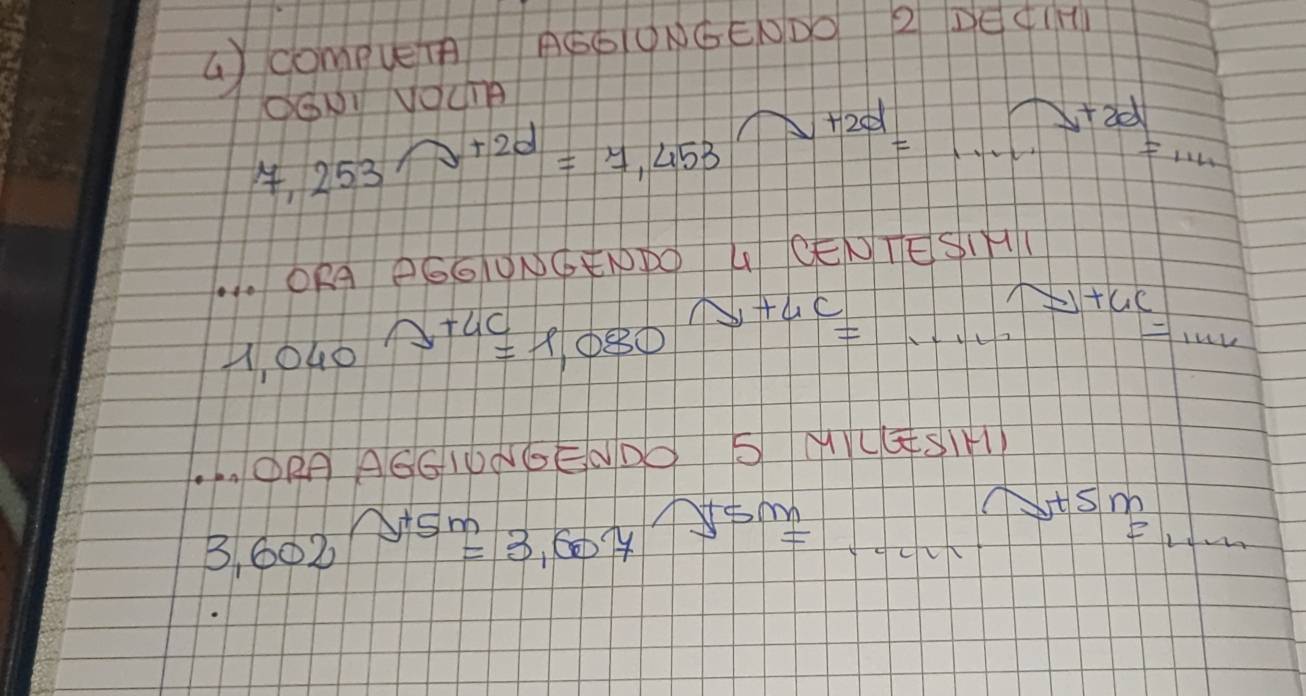 4) COMPLETA AGGIUNGENDO 2 DECIMI
OGNI VOLTA
7,253 +2d = 7,453 +2d = ..... +2d = .....
... ORA AGGIUNGENDO 4 CENTESIMI
1,040 +4c = 1,080 +4c = ..... +4c = .....
... ORA AGGIUNGENDO 5 MILLESIMI
3,602 +5m = 3,607 +5m = ..... +5m = .....